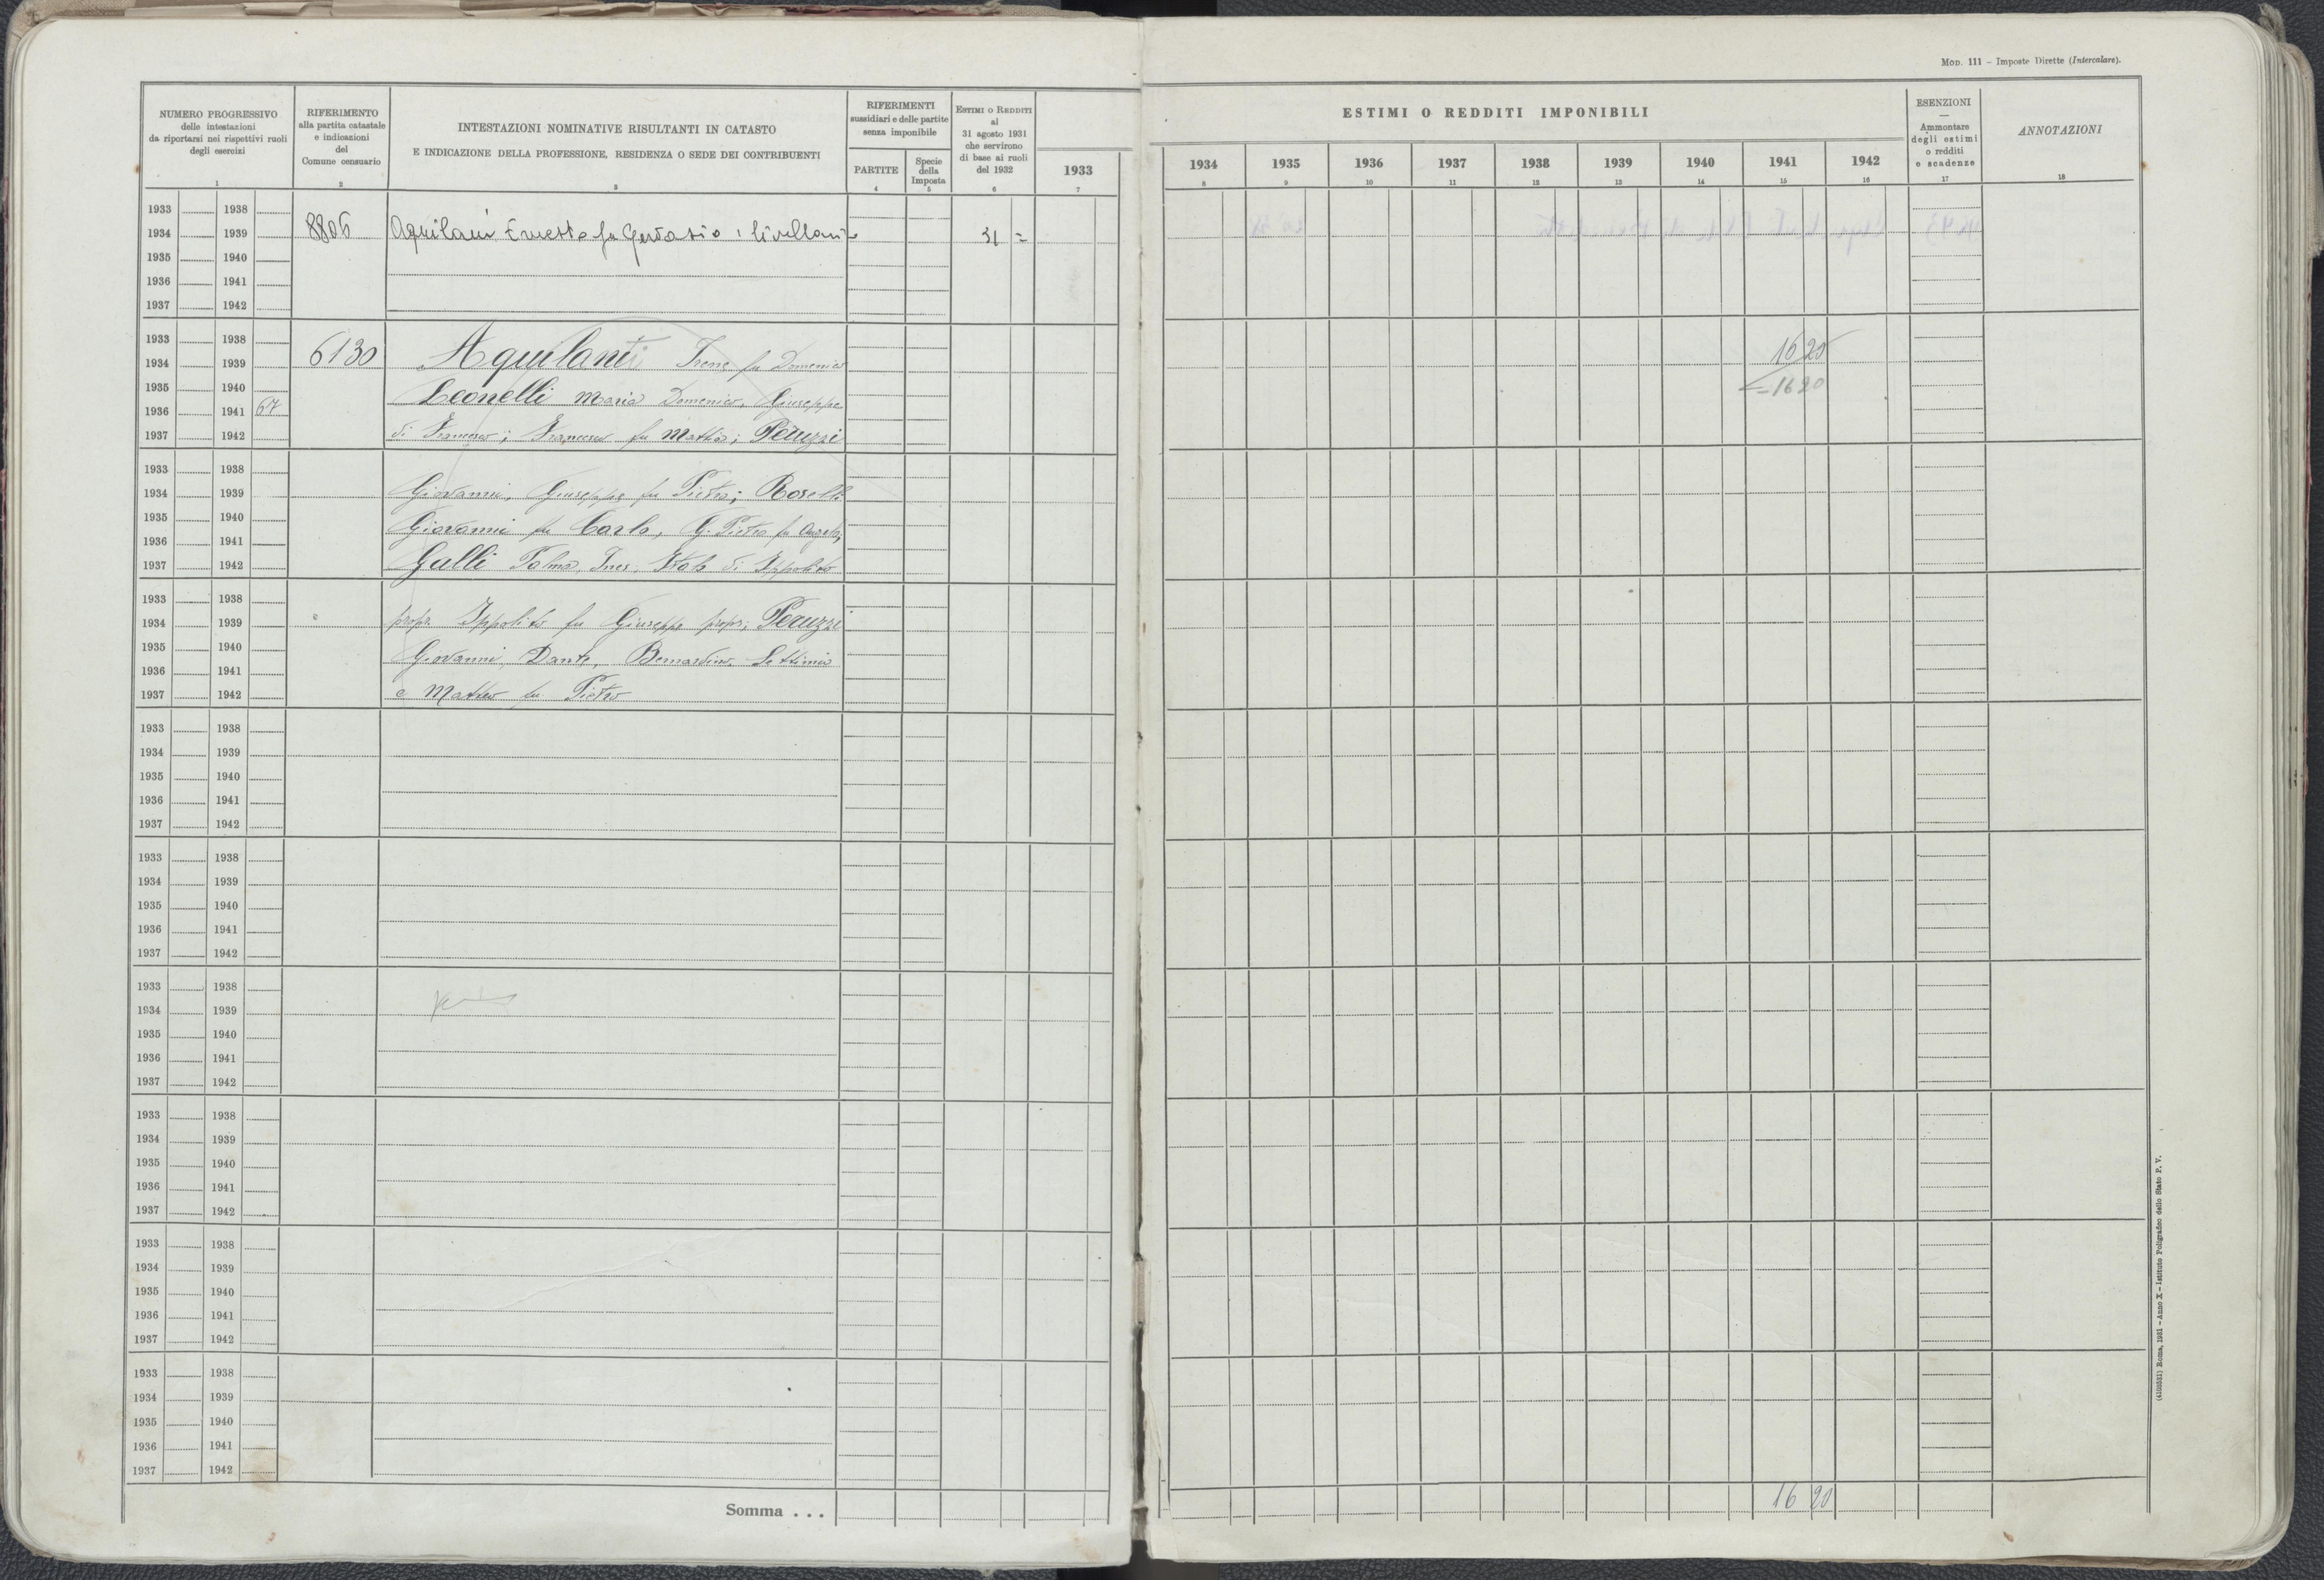 MOD. 111 – Imposte Dirette (Intercalare).
NUMERO PROGRESSIVO
delle intestazioni
da riportarsi nei rispettivi ruoli
degli esercizi
1
RIFERIMENTO
alla partita catastale
e indicazioni
del
Comune censuario
2
INTESTAZIONI NOMINATIVE RISULTANTI IN CATASTO
E INDICAZIONE DELLA PROFESSIONE, RESIDENZA O SEDE DEI CONTRIBUENTI
3
RIFERIMENTI
sussidiari e delle partite
senza imponibile
PARTITE
4
Specie
della
Imposta
5
ESTIMI O REDDITI
al
31 agosto 1931
che servirono
di base ai ruoli
del 1932
6
1933
7
ESTIMI O REDDITI IMPONIBILI
1934 1935 1936 1937 1938 1939 1940 1941 1942
8 9 10 11 12 13 14 15 16
ESENZIONI
—
Ammontare
degli estimi
o redditi
e scadenze
17
ANNOTAZIONI
18
1933 1938
1934 1939 8806 Aquilani fu Gervasio livellario 31 =
1935 1940
1936 1941
1937 1942
1933 1938
1934 1939 6130 Aquilanti Irene fu Domenico 16 20
1935 1940 Leonelli Maria Domenico, Giuseppe = 16 20
1936 1941 67
1937 1942 di Francesco; Francesco fu Mattia; Peruzzi
1933 1938
1934 1939 Giovanni, Giuseppe fu Pietro; Roselli
1935 1940 Giovanni fu Carlo, G. Pietro fu Angelo,
1936 1941
1937 1942 Galli Palma, Ines, Italo di Ippolito
1933 1938
1934 1939 propr. Ippolito fu Giuseppe propr; Peruzzi
1935 1940 Giovanni, Dante, Bernardino, Settimio
1936 1941
1937 1942 e Matteo fu Pietro
1933 1938
1934 1939
1935 1940
1936 1941
1937 1942
1933 1938
1934 1939
1935 1940
1936 1941
1937 1942
1933 1938
1934 1939
1935 1940
1936 1941
1937 1942
1933 1938
1934 1939
1935 1940
1936 1941
1937 1942
1933 1938
1934 1939
1935 1940
1936 1941
1937 1942
1933 1938
1934 1939
1935 1940
1936 1941
1937 1942
Somma . . . 16 20
Roma, 1931 – Anno X – Istituto Poligrafico dello Stato P. V.